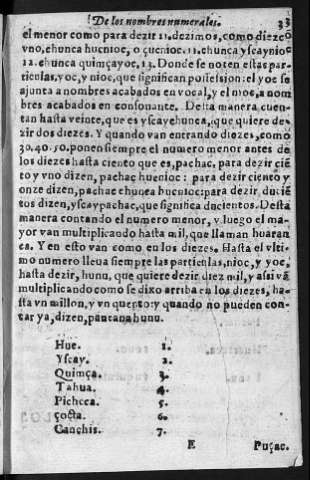 De los nombres numerales. 33
el menor como para dezir 11. dezimos, como diez o
vno, chunca hucnioc, o çucnioc. 11. chunca yscaynioc
12. chunca quimçayoc, 13. Donde se noten estas par-
ticulas, yoc, y nioc, que significan possession: el yoc se
ajunta a nombres acabados en vocal, y el nioc, a nom
bres acabados en consonante. Desta manera cuen-
tan hasta veinte, que es yscaychunca, que quiere de-
zir dos diezes. Y quando van entrando diezes, como
30. 40. 50. ponen siempre el numero menor antes de
los diezes hasta ciento que es, pachac, para dezir ciē
to y vno dizen, pachac hucnioc: para dezir ciento y
onze dizen, pachac chunca hucnioc: para dezir, duciē
tos dizen, yscaypachac, que significa ducientos. Desta
manera contando el numero menor, y luego el ma-
yor van multiplicando hasta mil, que llaman huaran
ca. Y en esto van como en los diezes. Hasta el vlti-
mo numero lleua siempre las particulas, nioc, y yoc,
hasta dezir, hunu, que quiere dezir diez mil, y assi vā
multiplicando como se dixo arriba en los diezes, ha-
sta vn millon, y vn quento: y quando no pueden con-
tar ya, dizen, pantana hunu.
Huc. 1.
Yscay. 2.
Quimça. 3.
Tahua. 4.
Pichcca. 5.
çocta. 6.
Canchis. 7.
E Puçac.